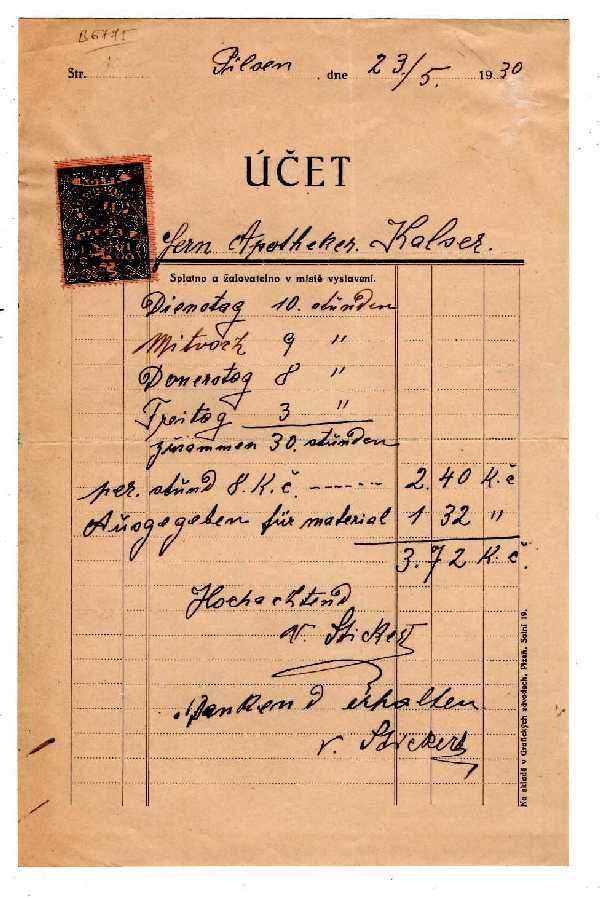 B6771
Str. Pilsen, dne 23/5. 1930
ÚČET
Hern Apotheker. Kalser.
Splatno a žalovatelno v místě vystavení.
Dienstag 10. stŭnden
Mitvoch 9 "
Donerstag 8 "
Freitag 3 "
zŭsammen 30. stŭnden
per. stŭnd 8. K.č. ------ 2.40 K.č
Aŭsgegeben für material 1 32 "
3.72 K.č.
Hochachtend
v. Stickert
Dankend erhalten
v. Stickert
Na skladě v Grafických závodech, Plzeň, Solní 19.